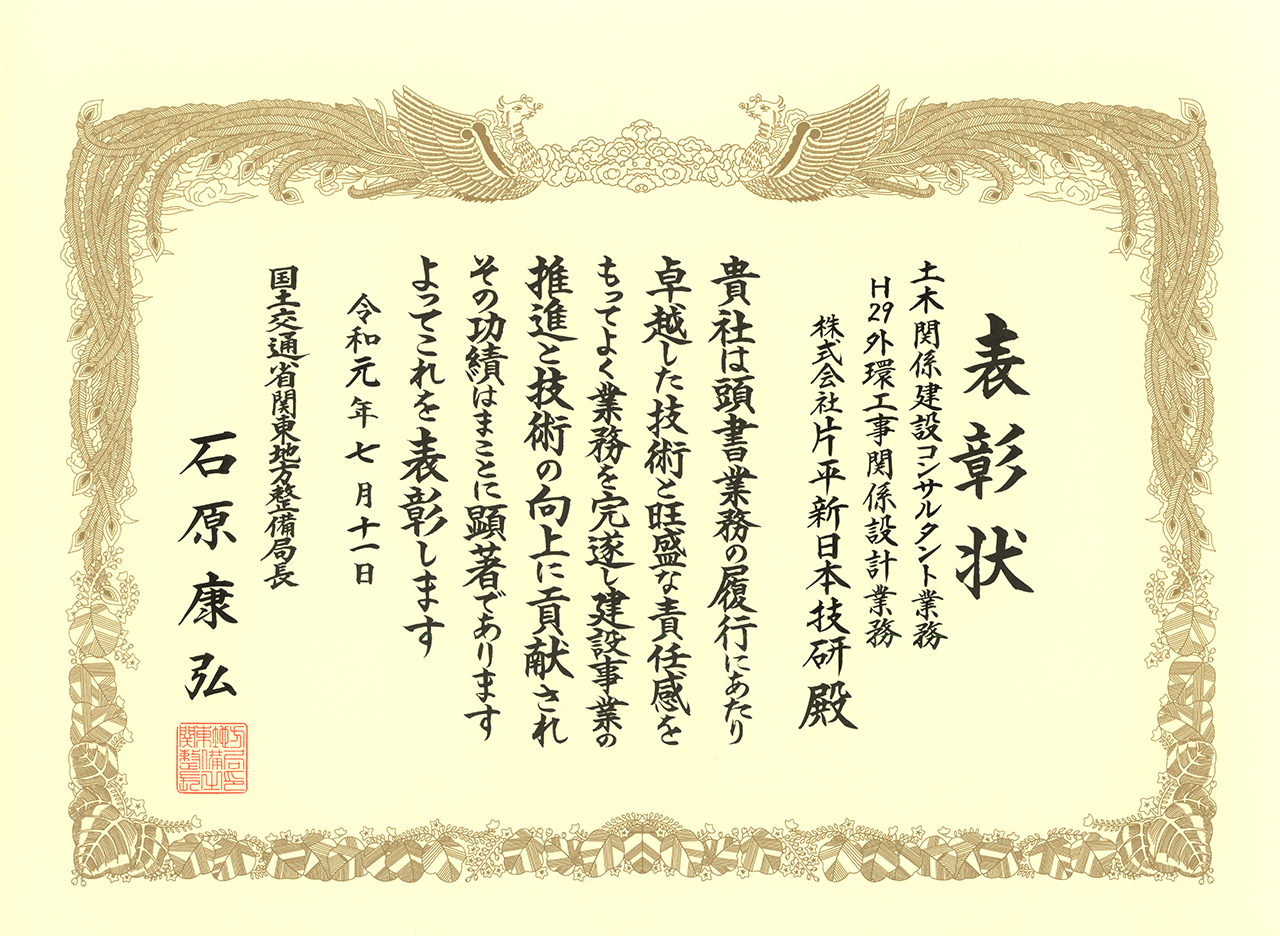 表彰状
土木関係建設コンサルタント業務
H29外環工事関係設計業務
株式会社片平新日本技研 殿
貴社は頭書業務の履行にあたり
卓越した技術と旺盛な責任感を
もってよく業務を完遂し建設事業の
推進と技術の向上に貢献され
その功績はまことに顕著であります
よってこれを表彰します
令和元年七月十一日
国土交通省関東地方整備局長
石原康弘